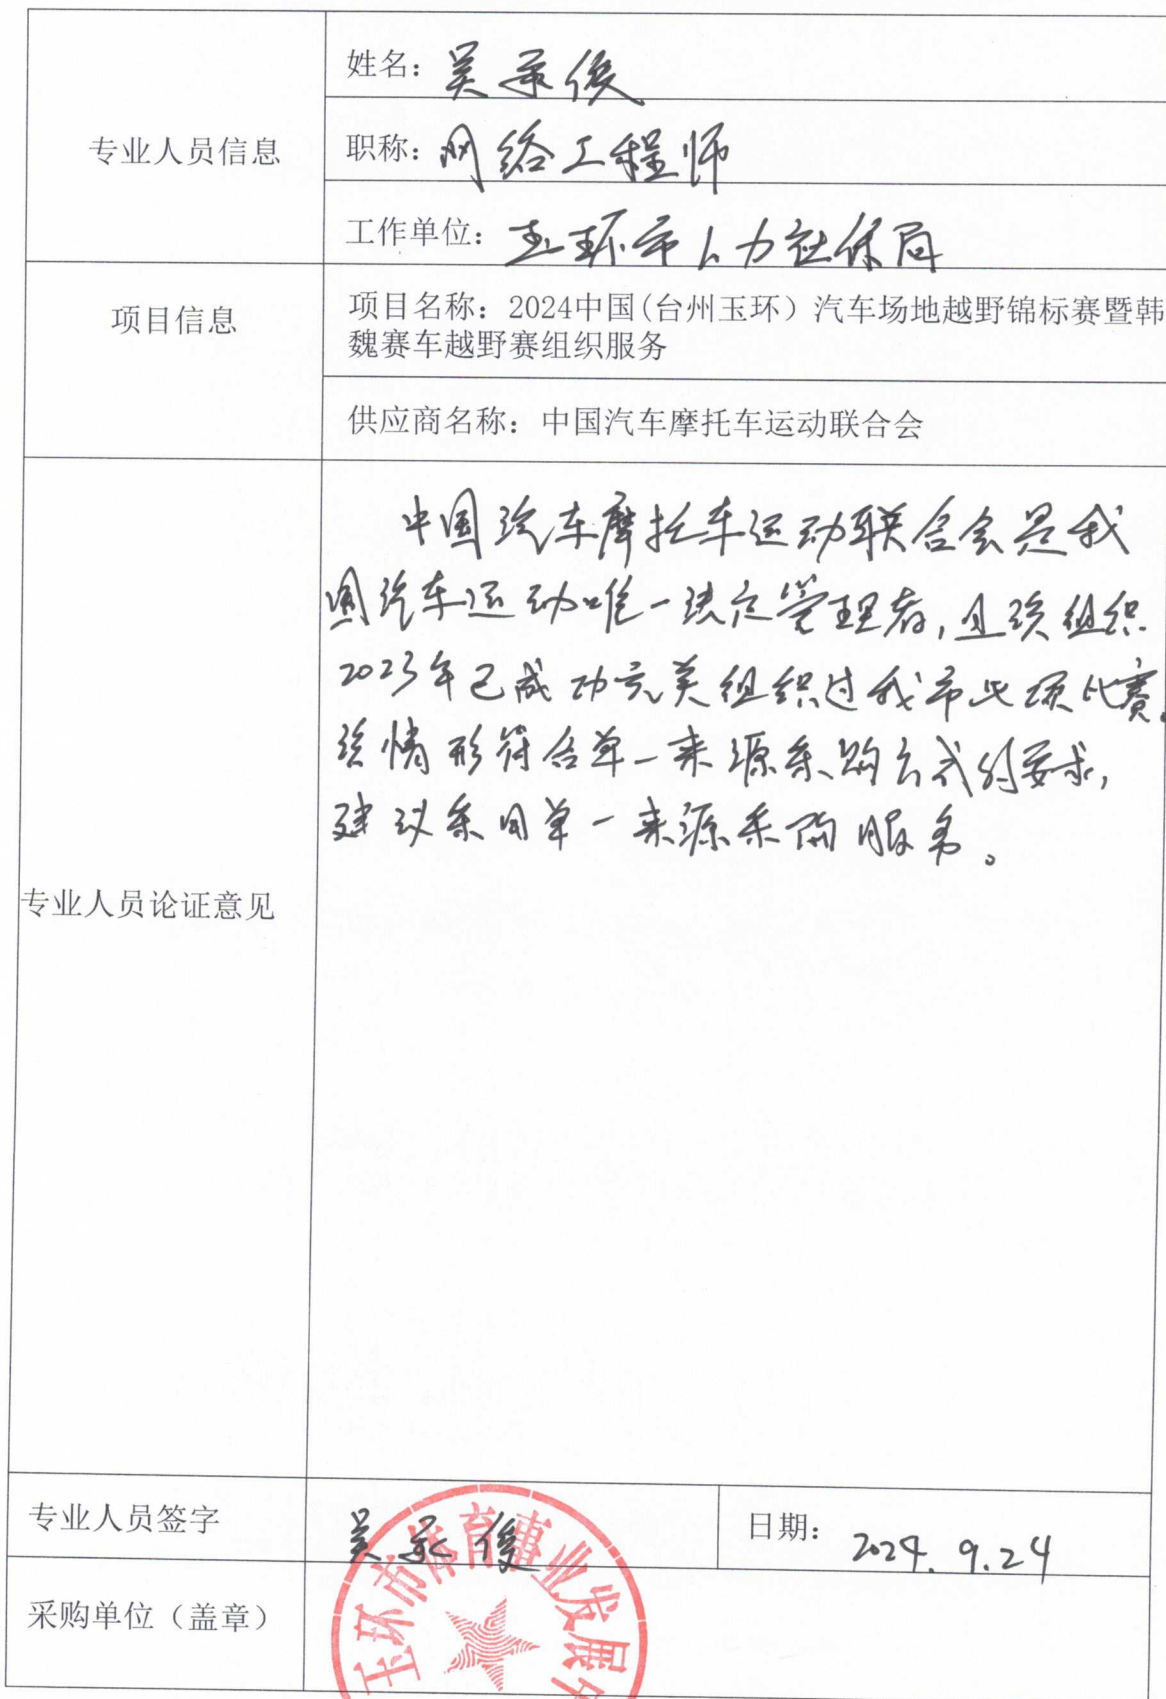 专业人员信息
姓名：吴承俊
职称：网络工程师
工作单位：玉环市人力社保局
项目信息
项目名称：2024中国(台州玉环）汽车场地越野锦标赛暨韩
魏赛车越野赛组织服务
供应商名称：中国汽车摩托车运动联合会
专业人员论证意见
中国汽车摩托车运动联合会是我
国汽车运动唯一法定管理者,且该组织
2023年已成功完美组织过我市此项比赛。
该情形符合单一来源采购方式的要求,
建议采用单一来源采购服务。
专业人员签字
吴承俊
日期：2024.9.24
采购单位（盖章）
玉环市体育事业发展中